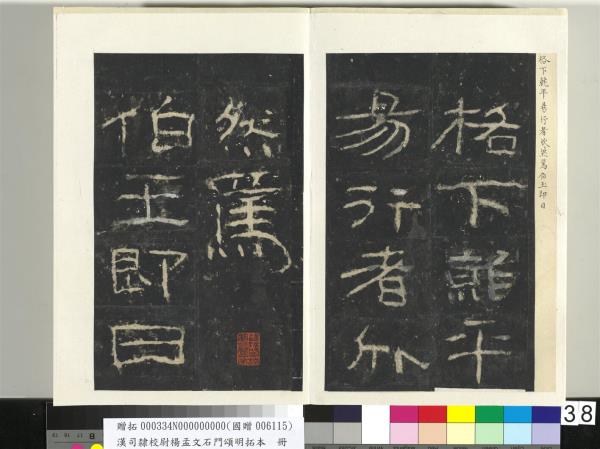 格下就平易行者欣然焉伯玉即日
格下就平
易行者欣
然焉
伯王即日
贈拓 000334N000000000(國贈 006115)
漢司隸校尉楊孟文石門頌明拓本 冊
38